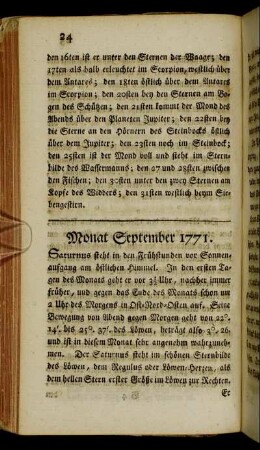 24
den 16ten ist er unter den Sternen der Waage; den
17ten als halb erleuchtet im Scorpion, westlich über
dem Antares; den 18ten östlich über dem Antares
im Scorpion; den 20sten bey den Sternen am Bo-
gen des Schützen; den 21sten kommt der Mond des
Abends über den Planeten Jupiter; den 22sten bey
die Sterne an den Hörnern des Steinbocks östlich
über dem Jupiter; den 23sten noch im Steinbock;
den 25sten ist der Mond voll und steht im Stern-
bilde des Wassermanns; den 27 und 28sten zwischen
den Fischen; den 30sten unter den zwey Sternen am
Kopfe des Widders; den 31sten westlich beym Sie-
bengestirn.
Monat September 1771.
Saturnus steht in den Frühstunden vor Sonnen-
aufgang am östlichen Himmel. In den ersten Ta-
gen des Monats geht er vor 3½ Uhr, nachher immer
früher, und gegen das Ende des Monats schon um
2 Uhr des Morgens in Ost-Nord-Osten auf. Seine
Bewegung von Abend gegen Morgen geht von 22°.
14'. bis 25°. 37'. des Löwen, beträgt also 3°. 26.
und ist in diesem Monat sehr angenehm wahrzuneh-
men. Der Saturnus steht im schönen Sternbilde
des Löwen, dem Regulus oder Löwen-Herzen, als
dem hellen Stern erster Größe im Löwen zur Rechten.
Er